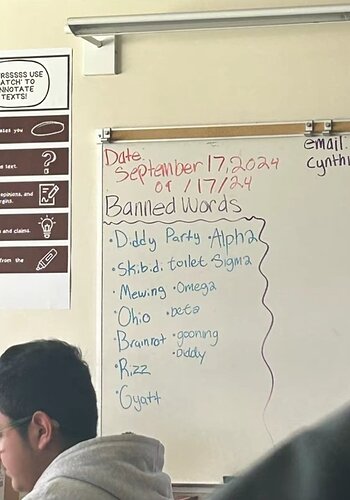 USE
TO
NNOTATE
TEXTS!
you
e text.
opinions, and
and claims.
from the
email:
Cynthi
Date:
September 17, 2024
09/17/24
Banned Words
•Diddy Party •Alpha
•Skibidi toilet Sigma
•Mewing •Omega
•Ohio •beta
•Brainrot •gooning
•Diddy
•Rizz
•Gyatt